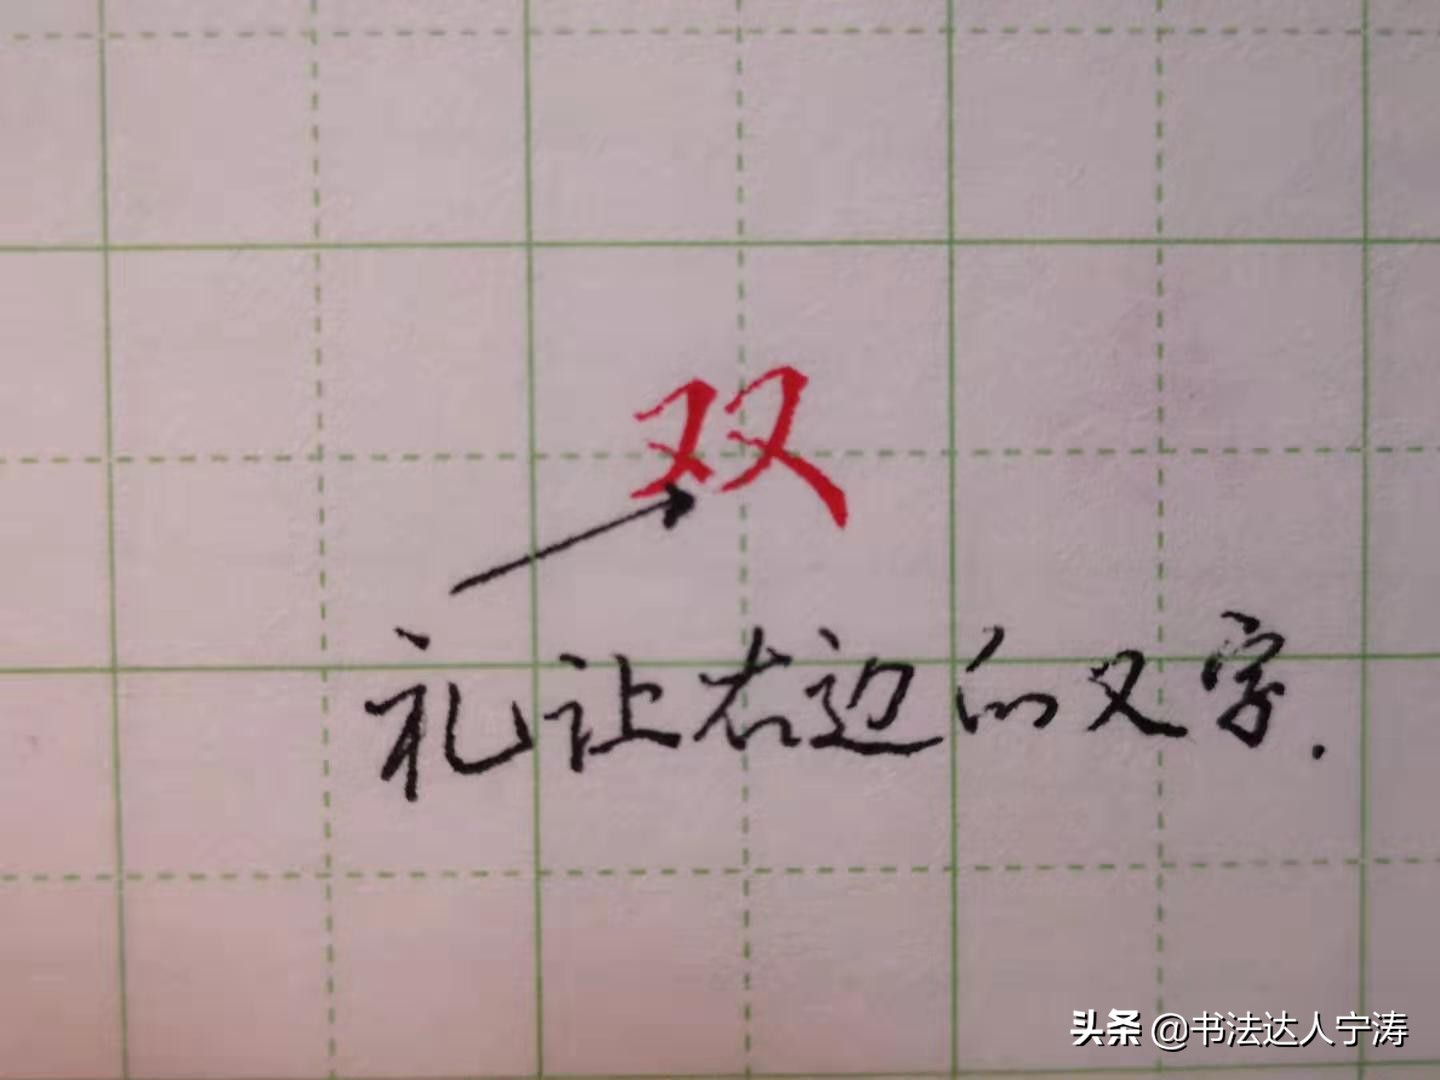 双
礼让右边的又字.
头条 @书法达人宁涛